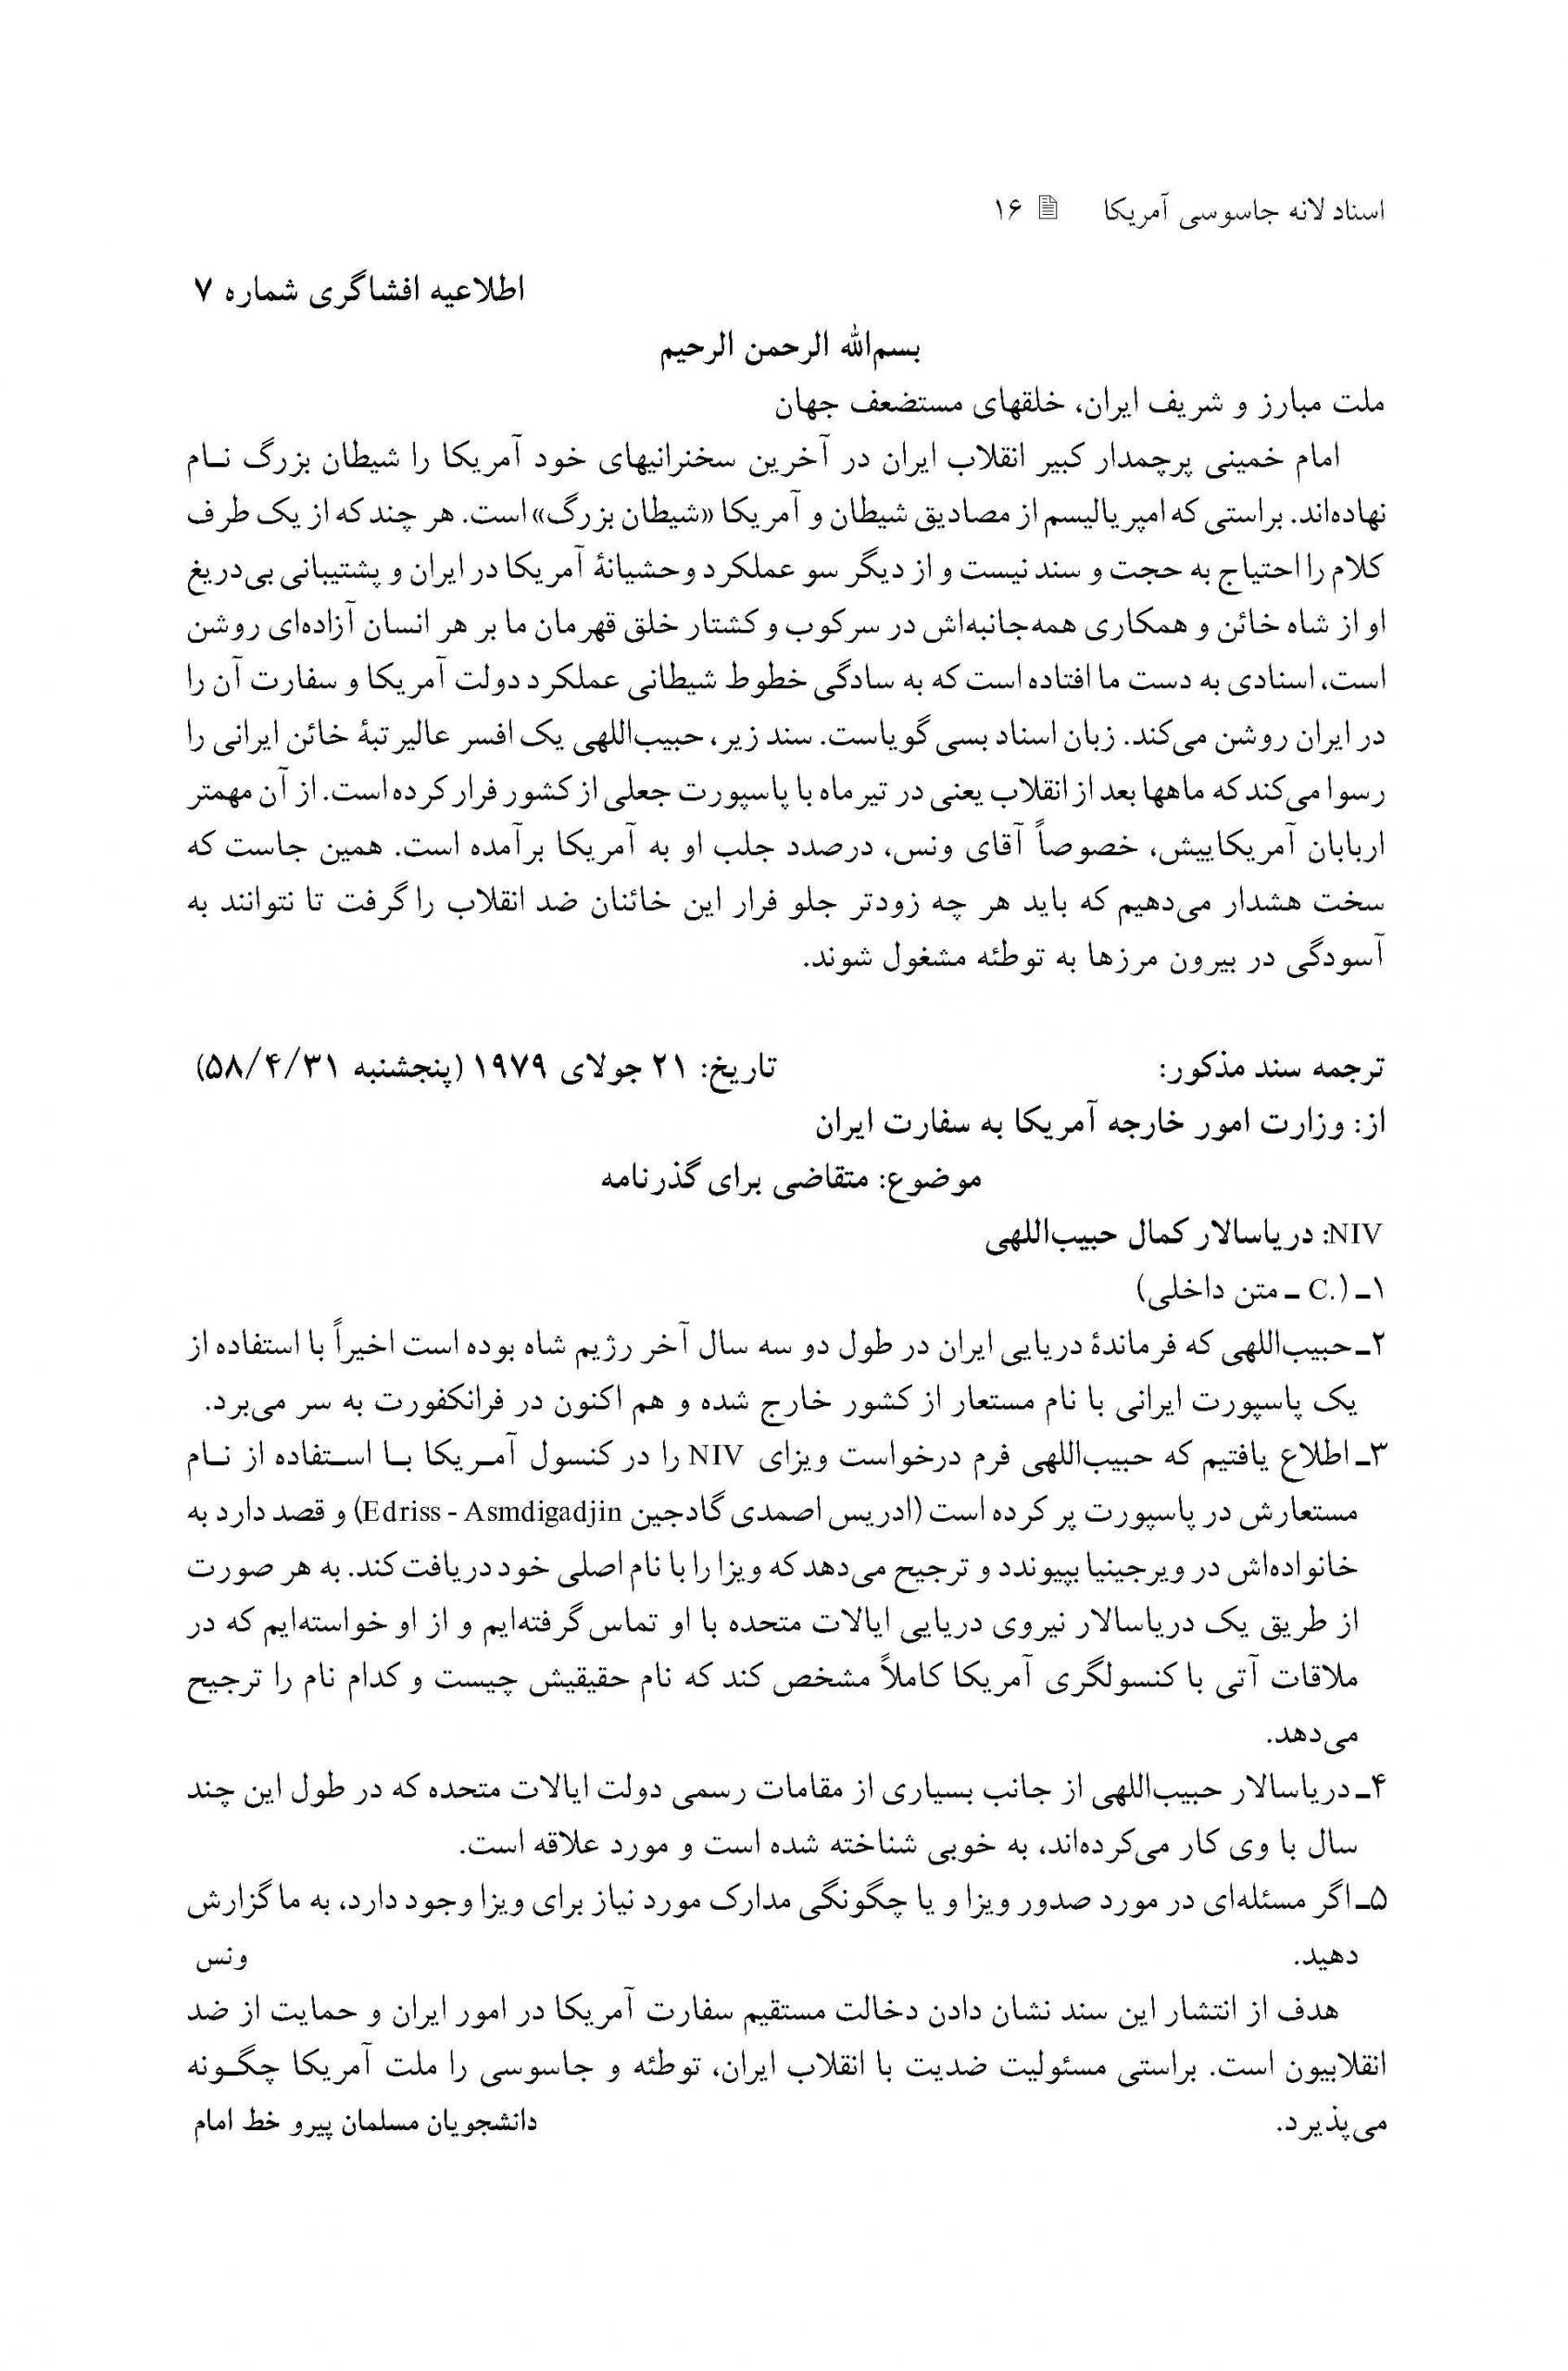 اسناد لانه جاسوسی آمریکا ۱۶
اطلاعیه افشاگری شماره ۷
بسم‌الله الرحمن الرحیم
ملت مبارز و شریف ایران، خلقهای مستضعف جهان
امام خمینی پرچمدار کبیر انقلاب ایران در آخرین سخنرانیهای خود آمریکا را شیطان بزرگ نـام
نهاده‌اند. براستی که امپریالیسم از مصادیق شیطان و آمریکا «شیطان بزرگ» است. هر چند که از یک طرف
کلام را احتیاج به حجت و سند نیست و از دیگر سو عملکرد وحشیانهٔ آمریکا در ایران و پشتیبانی بی‌دریغ
او از شاه خائن و همکاری همه‌جانبه‌اش در سرکوب و کشتار خلق قهرمان ما بر هر انسان آزاده‌ای روشن
است، اسنادی به دست ما افتاده است که به سادگی خطوط شیطانی عملکرد دولت آمریکا و سفارت آن را
در ایران روشن می‌کند. زبان اسناد بسی گویاست. سند زیر، حبیب‌اللهی یک افسر عالیرتبهٔ خائن ایرانی را
رسوا می‌کند که ماهها بعد از انقلاب یعنی در تیرماه با پاسپورت جعلی از کشور فرار کرده است. از آن مهمتر
اربابان آمریکاییش، خصوصاً آقای ونس، درصدد جلب او به آمریکا برآمده است. همین جاست که
سخت هشدار می‌دهیم که باید هر چه زودتر جلو فرار این خائنان ضد انقلاب را گرفت تا نتوانند به
آسودگی در بیرون مرزها به توطئه مشغول شوند.
ترجمه سند مذکور: تاریخ: ۲۱ جولای ۱۹۷۹ (پنجشنبه ۵۸/۴/۳۱)
از: وزارت امور خارجه آمریکا به سفارت ایران
موضوع: متقاضی برای گذرنامه
NIV: دریاسالار کمال حبیب‌اللهی
۱ـ (.C ـ متن داخلی)
۲ـ حبیب‌اللهی که فرماندهٔ دریایی ایران در طول دو سه سال آخر رژیم شاه بوده است اخیراً با استفاده از
یک پاسپورت ایرانی با نام مستعار از کشور خارج شده و هم اکنون در فرانکفورت به سر می‌برد.
۳ـ اطلاع یافتیم که حبیب‌اللهی فرم درخواست ویزای NIV را در کنسول آمـریکا بـا اسـتفاده از نـام
مستعارش در پاسپورت پر کرده است (ادریس اصمدی گادجین Edriss - Asmdigadjin) و قصد دارد به
خانواده‌اش در ویرجینیا بپیوندد و ترجیح می‌دهد که ویزا را با نام اصلی خود دریافت کند. به هر صورت
از طریق یک دریاسالار نیروی دریایی ایالات متحده با او تماس گرفته‌ایم و از او خواسته‌ایم که در
ملاقات آتی با کنسولگری آمریکا کاملاً مشخص کند که نام حقیقیش چیست و کدام نام را ترجیح
می‌دهد.
۴ـ دریاسالار حبیب‌اللهی از جانب بسیاری از مقامات رسمی دولت ایالات متحده که در طول این چند
سال با وی کار می‌کرده‌اند، به خوبی شناخته شده است و مورد علاقه است.
۵ـ اگر مسئله‌ای در مورد صدور ویزا و یا چگونگی مدارک مورد نیاز برای ویزا وجود دارد، به ما گزارش
دهید. ونس
هدف از انتشار این سند نشان دادن دخالت مستقیم سفارت آمریکا در امور ایران و حمایت از ضد
انقلابیون است. براستی مسئولیت ضدیت با انقلاب ایران، توطئه و جاسوسی را ملت آمریکا چگـونه
می‌پذیرد. دانشجویان مسلمان پیرو خط امام